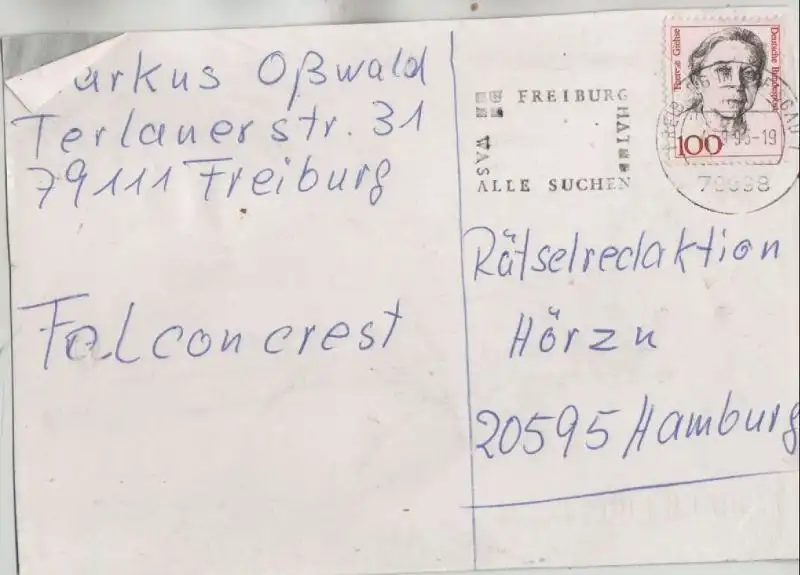 arkus Oßwald
Terlanerstr. 31
79111 Freiburg
Falconcrest
FREIBURG
HAT
WAS
ALLE SUCHEN
Deutsche Bundespost
100
-19
Rätselredaktion
Hörzu
20595 Hamburg